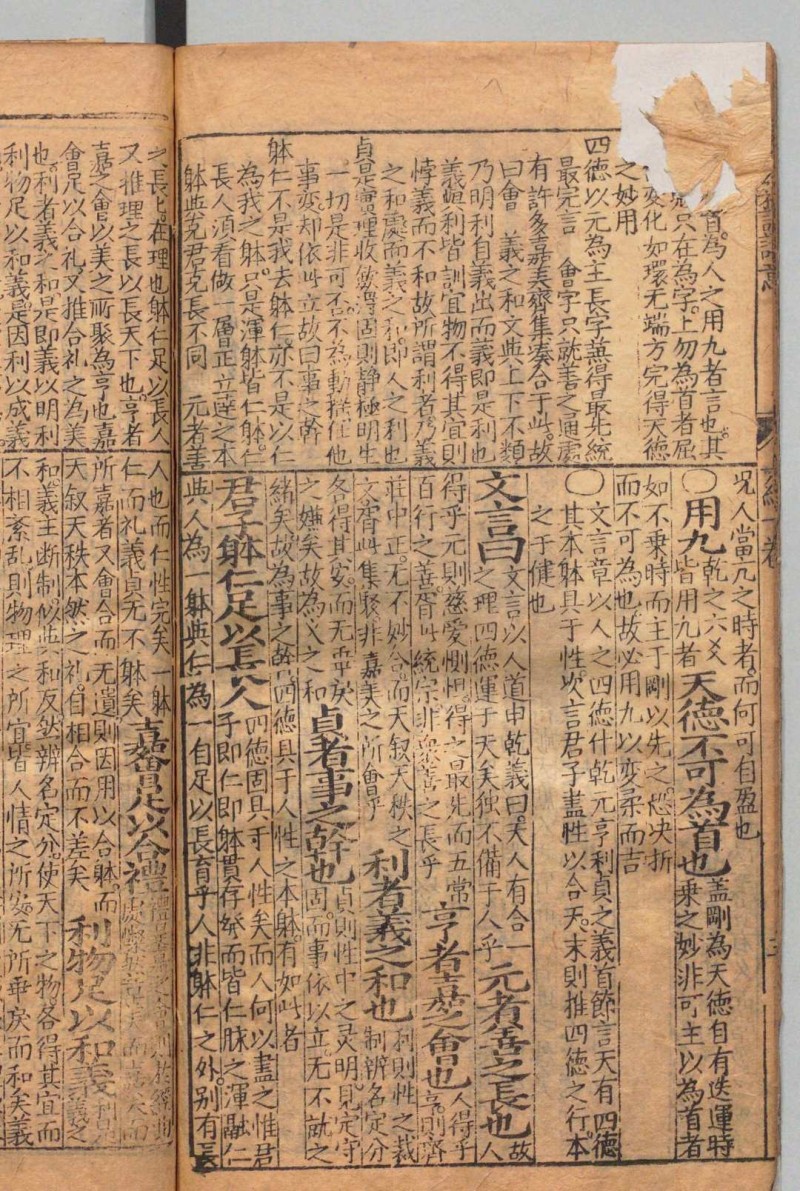 首為人之用九者言也其
只在為字上勿為首者屈
變化如環无端方完得天德
之妙用
四德以元為主長字兼得最先統
最完言 會字只就善之通處
有許多嘉美齊集湊合于此故
曰會 義之和文與上下不類
乃明利自義出而義即是利也
義與利皆訓宜物不得其宜則
悖義而不和故所謂利者乃義
之和處而義之和即人之利也
貞是實理收斂凝固則静極明生
一切是非可否不為動搖任他
事变却依此立故曰事之幹
躰仁不是我去躰仁亦不是以仁
為我之躰只是渾躰皆仁躰仁
長人須看做一層正立達之本
長不同 元者善
况人當亢之時者而何可自盈也
〇用九乾之六爻皆用九者天德不可為首也蓋剛為天德自有迭運時乘之妙非可主以為首者
如不乘時而主于剛以先之恐决折
而不可為也故必用九以变柔而吉
〇文言章以人之四德什乾元亨利貞之義首節言天有四德
其本躰具于性次言君子盡性以合天末則推四德之行本
之于健也
文言曰文言以人道申乾義曰天人有合一之理四德運于天矣独不備于人乎元者善之長也故人
得乎元則慈愛惻怛得之最先而五常百行之善胥此統宗非衆善之長乎亨者嘉之會也人得乎亨則齊
莊中正无不妙合而天叙天秩之文胥此集聚非嘉美之所會乎利者義之和也利則性之裁制辨名定分
各得其安而无乖戾之嫌矣故為义之和貞者事之幹也貞則性中之灵明見定守固而事依以立无不就之
緒矣故為事之幹四德具于人性之本躰有如此者
君子躰仁足以長人四德固具于人性矣而人何以盡之惟君子即仁即躰貫存發而皆仁脉之渾融仁
與人為一躰與仁為一自足以長育乎人非躰仁之外别有長
之長上在理也躰仁足以長人
又推理之長以長天下也亨者
嘉之會以美之所聚為亨也嘉
會足以合礼又推合礼之為美
也利者義之和是即義以明利
利物足以和義是因利以成義
人也而仁性完矣一躰仁而礼義貞无不躰矣嘉會足以合禮
所嘉者又會合而无遺則因用以合躰而天叙天秩本然之礼自相合而不差矣利物足以和義
和義主断制似與和反然辨名定分使天下之物各得其宜而
不相紊乱則物理之所宜皆人情之所安无所乖戾而和矣義